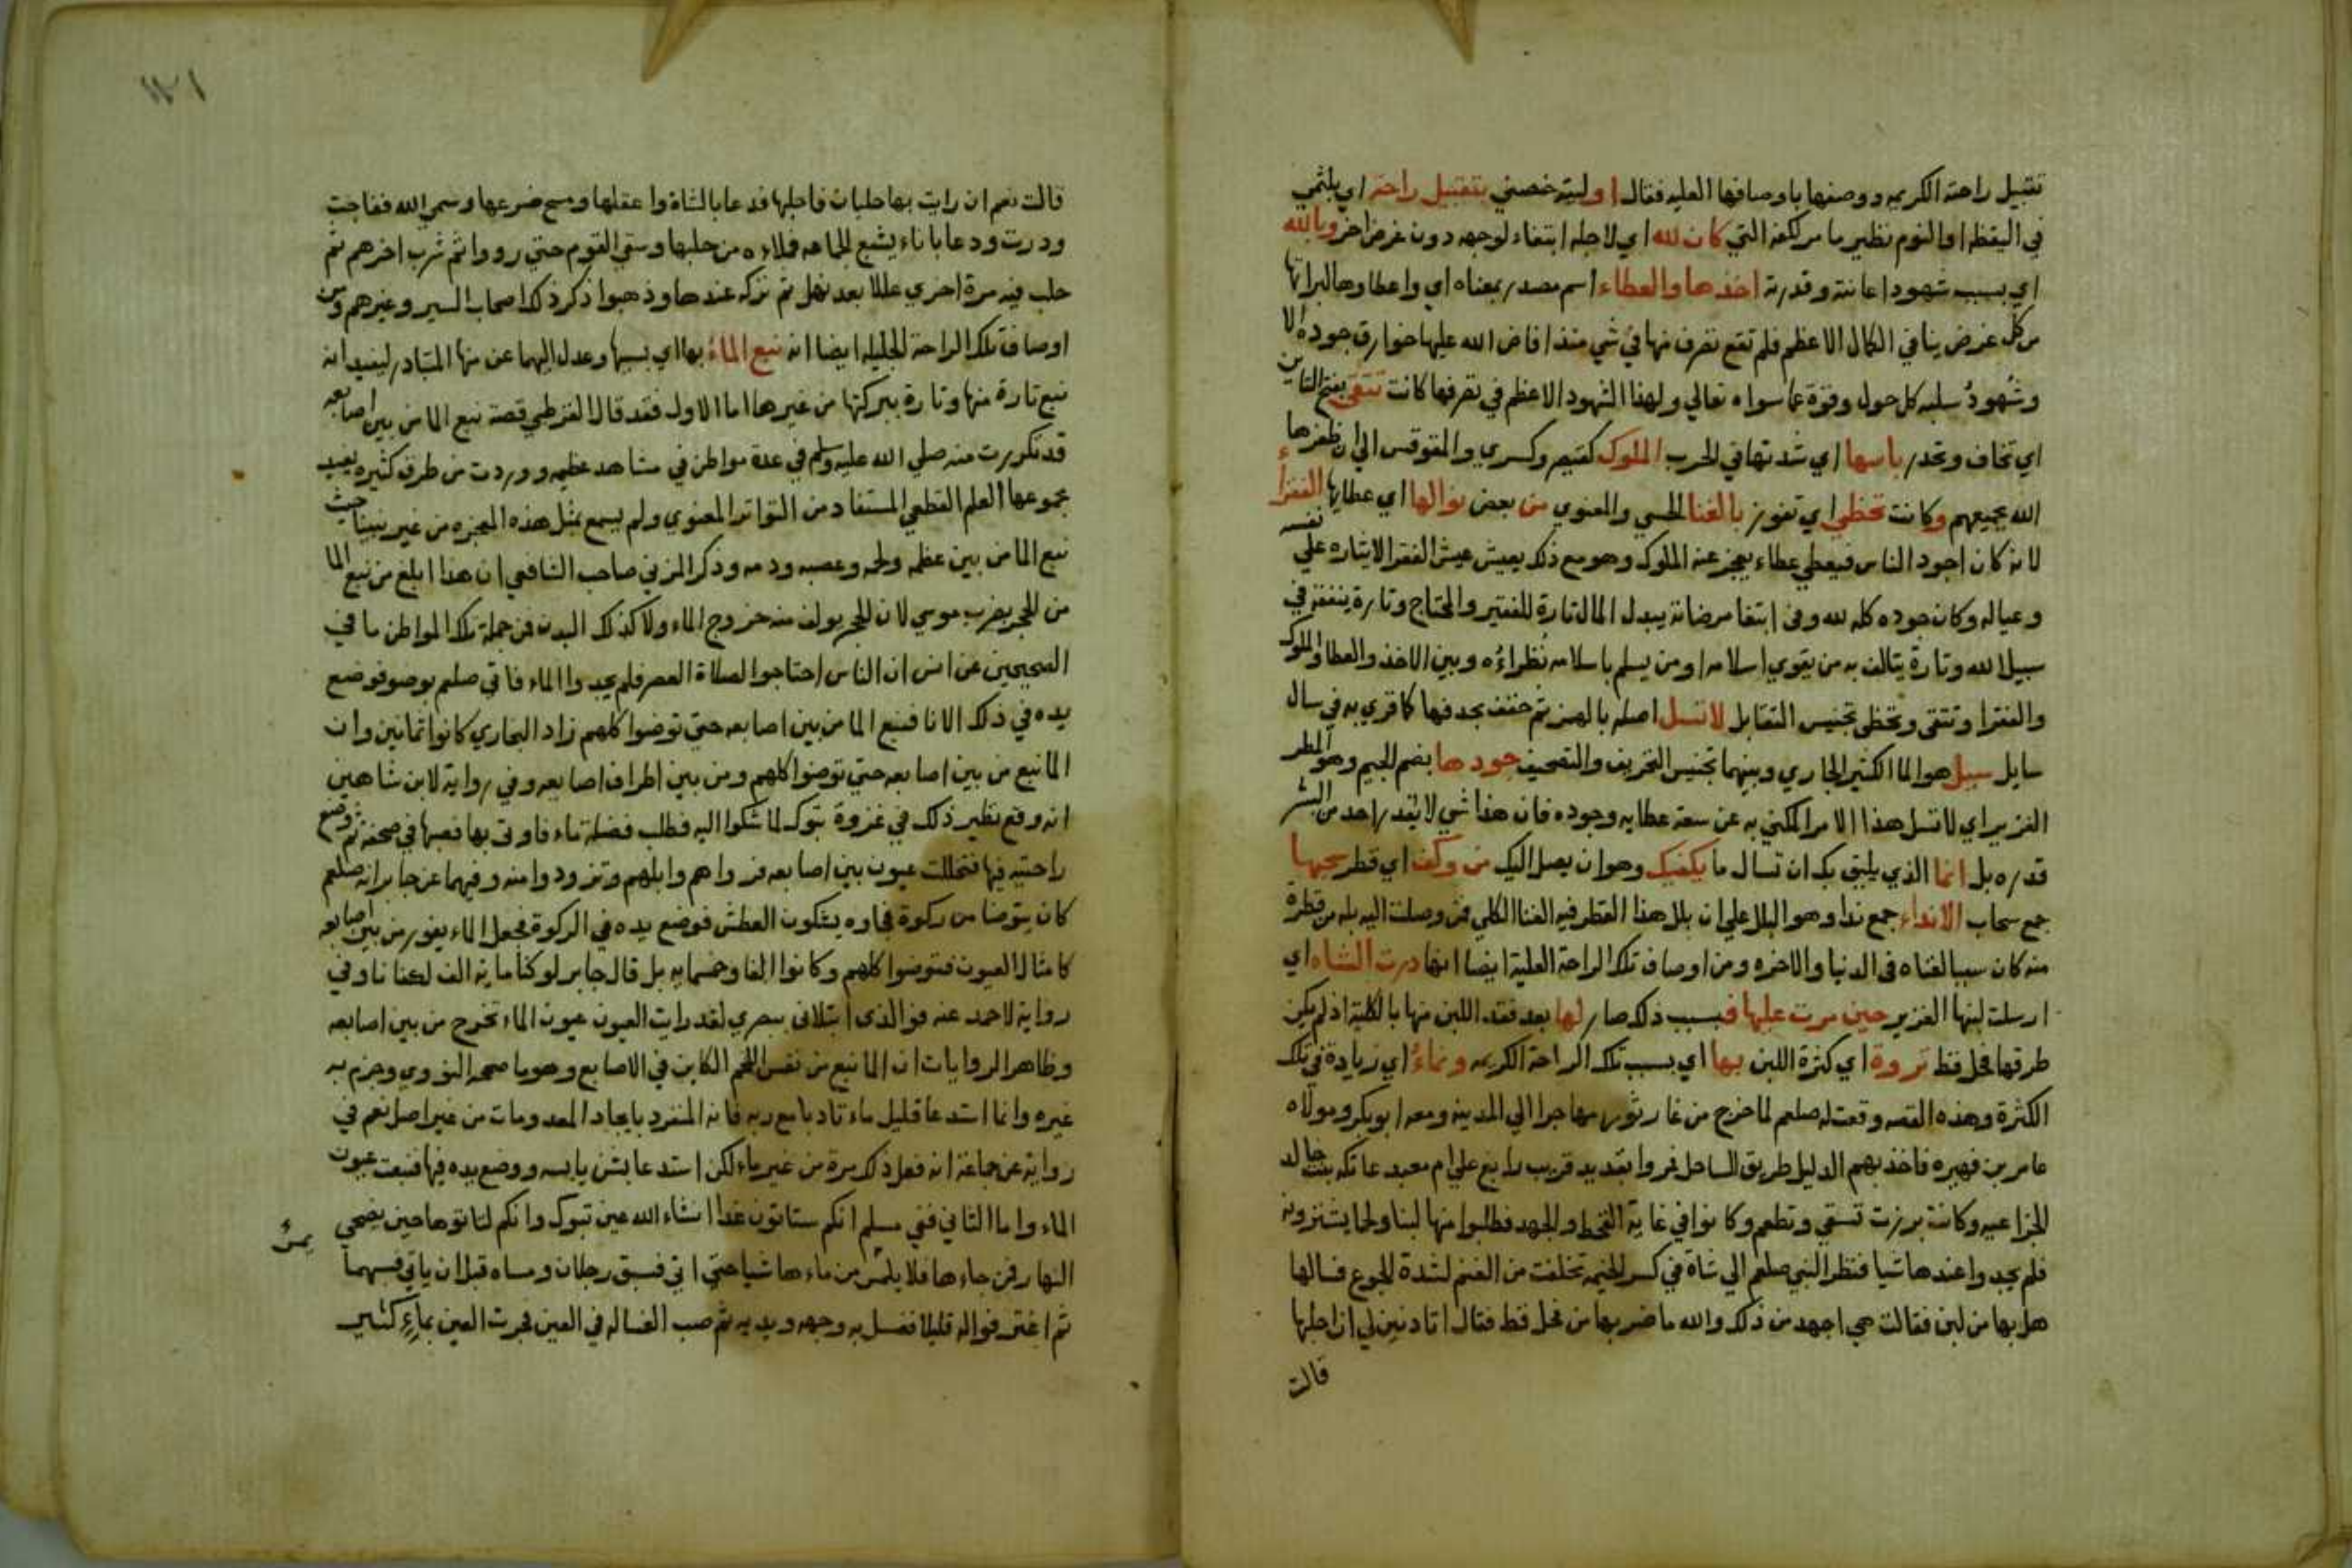 تقبيل راحته الكريمه ووصفها باوصافها العليه فقال او ليته خصني بتقبيل راحة اي يلثمي
في اليقظة او النوم نظير ما مر لكفه التي كان لله اي لاجله ابتغاء لوجهه دون غرض اخر وبالله
اي بسبب شهود اعانته وقدرته اخذها والعطاء اسم مصدر بمعناه اي واعطاوها لبراتها
من كل غرض ينافي الكمال الاعظم فلم تقع تصرف منها في شي منذ افاض الله عليها خوارق جوده الا
وشهود سلبه كل حول وقوة عما سواه تعالي ولهذا الشهود الاعظم في تصرفها كانت تتقي بفتح التاين
اي تخاف وتحدر باسها اي شدتها في الحرب الملوك كقيصر وكسري والمقوقس الي ان ظفرها
الله بجميعهم وكانت تحظي اي تفوز بالغنا الحسي والمعنوي من بعض نوالها اي عطايها الفقراء
لانه كان اجود الناس فيعطي عطاء يعجز عنه الملوك وهو مع ذلك يعيش عيش الفقرا لايثاره علي نفسه
وعياله وكان جوده كله لله وفي ابتغا مرضاته يبدل المال تارة للفقير والمحتاج وتارة ينفقه في
سبيل الله وتارة يتالف به من يقوي اسلامه او من يسلم باسلامه نظراءه وبين الاخذ والعطا والملوك
والفقرا وتتقي وتحظي تجنيس التقابل لاتسل اصله بالهمز ثم خفف بحدفها كما قري به في سال
سايل سيل هو الما الكثير الجاري وبينهما تجنيس التحريف والتصحيف جودها بضم الجيم وهو المطر
الغزير اي لا تسل هذا الامر المكني به عن سعة عطايه وجوده فان هذا شي لا يقدر احد من البشر
قدره بل انما الذي يليق بك ان تسال ما يكفيك وهو ان يصل اليك من وكف اي قطر سحبها
جمع سحاب الانداء جمع ندا وهو البلل علي ان بلل هذا القطر فيه الغنا الكلي فمن وصلت اليه بله من قطرة
منه كان سببا لغناه في الدنيا والاخره ومن اوصاف تلك الراحة العلية ايضا انها درت الشاه اي
ارسلت لبنها الغزير حين مرت عليها فبسبب ذلك صار لها بعد فقد اللبن منها بالكلية اذ لم يكن
طرقها فحل قط ثروة اي كثرة اللبن بها اي بسبب تلك الراحة الكريمه ونماء اي زيادة في تلك
الكثرة وهذه القصه وقعت له صلعم لما خرج من غار ثور مهاجرا الي المدينه ومعه ابو بكر ومولاه
عامر بن فهيره فاخذ بهم الدليل طريق الساحل فمروا بقديد قريب رابغ علي ام معبد عاتكه بنت خالد
الخزاعيه وكانت برزت تسقي وتطعم وكانوا في غاية القحط والجهد فطلبوا منها لبنا ولحما يشترونه
فلم يجدوا عندها شيا فنظر النبي صلعم الي شاة في كسر الخيمه تخلفت من الغنم لشدة الجوع فسالها
هل بها من لبن فقالت هي اجهد من ذلك والله ما ضربها من فحل قط فقال اتادنين لي ان احلبها
قالت
قالت نعم ان رايت بها حلبا فاحلبها فدعا بالشاة واعتقلها ومسح ضرعها وسمي الله فتفاجت
ودرت ودعا باناء يشبع الجماعه فملاه من حلبها وسقي القوم حتي رووا ثم شرب اخرهم ثم
حلب فيه مرة اخري عللا بعد نهل ثم تركه عندها وذهبوا ذكر ذلك اصحاب السير وغيرهم ومن
اوصاف تلك الراحة الجليله ايضا انه نبع الماء بها اي بسببها وعدل اليهما عن منها المتبادر ليفيد انه
نبع تارة منها وتارة ببركتها من غيرها اما الاول فقد قال القرطبي قصة نبع الما من بين اصابعه
قد تكررت منه صلي الله عليه وسلم في عدة مواطن في مشاهد عظيمه ووردت من طرق كثيره يفيد
مجموعها العلم القطعي المستفاد من التواتر المعنوي ولم يسمع بمثل هذه المعجزه من غير نبينا حيث
نبع الما من بين عظمه ولحمه وعصبه ودمه وذكر المزني صاحب الشافعي ان هذا ابلغ من نبع الما
من الحجر بضرب موسي لان الحجر يولف منه خروج الماء ولا كذلك البدن فمن جملة تلك المواطن ما في
الصحيحين عن انس ان الناس احتاجوا لصلاة العصر فلم يجدوا الماء فاتي صلعم بوضو فوضع
يده في ذلك الانا فنبع الما من بين اصابعه حتي توضوا كلهم زاد البخاري كانوا ثمانين وان
الما نبع من بين اصابعه حتي توضوا كلهم ومن بين اطراف اصابعه وفي رواية لابن شاهين
انه وقع نظير ذلك في غزوة تبوك لما شكوا اليه فطلب فضلة ماء فاوتي بها فصبها في صحفة ثم وضع
راحتيه فيها فتخللت عيون بين اصابعه فرواهم وابلهم وتزودوا منه وفيهما عن جابر انه صلعم
كان يتوضا من ركوة فجاوه يشكون العطش فوضع يده في الركوة فجعل الماء يفور من بين اصابعه
كامثال العيون فتوضوا كلهم وكانوا الفا وخمسمايه بل قال جابر لو كنا مايه الف لكفانا وفي
رواية لاحمد عنه فوالذي ابتلاني ببصري لقد رايت العيون عيون الماء تخرج من بين اصابعه
وظاهر الروايات ان الما نبع من نفس اللحم الكاين في الاصابع وهو ما صححه النووي وجزم به
غيره وانما استدعا قليل ماء تادبا مع ربه فانه المنفرد بايجاد المعدومات من غير اصل نعم في
رواية عن جماعة انه فعل ذلك مرة من غير ماء لكن استدعا بشن يابسه ووضع يده فيها فنبعت عيون
الماء واما الثاني ففي مسلم انكم ستاتون غدا انشاء الله عين تبوك وانكم لن تاتوها حين يضحي
النهار فمن جاءها فلا يلمس من ماءها شيا حتي اتي فسبق رجلان ومساه قبل ان ياتي فسبهما
ثم اغترفوا له قليلا فغسل به وجهه ويديه ثم صب الغساله في العين فجرت العين بماء كثير